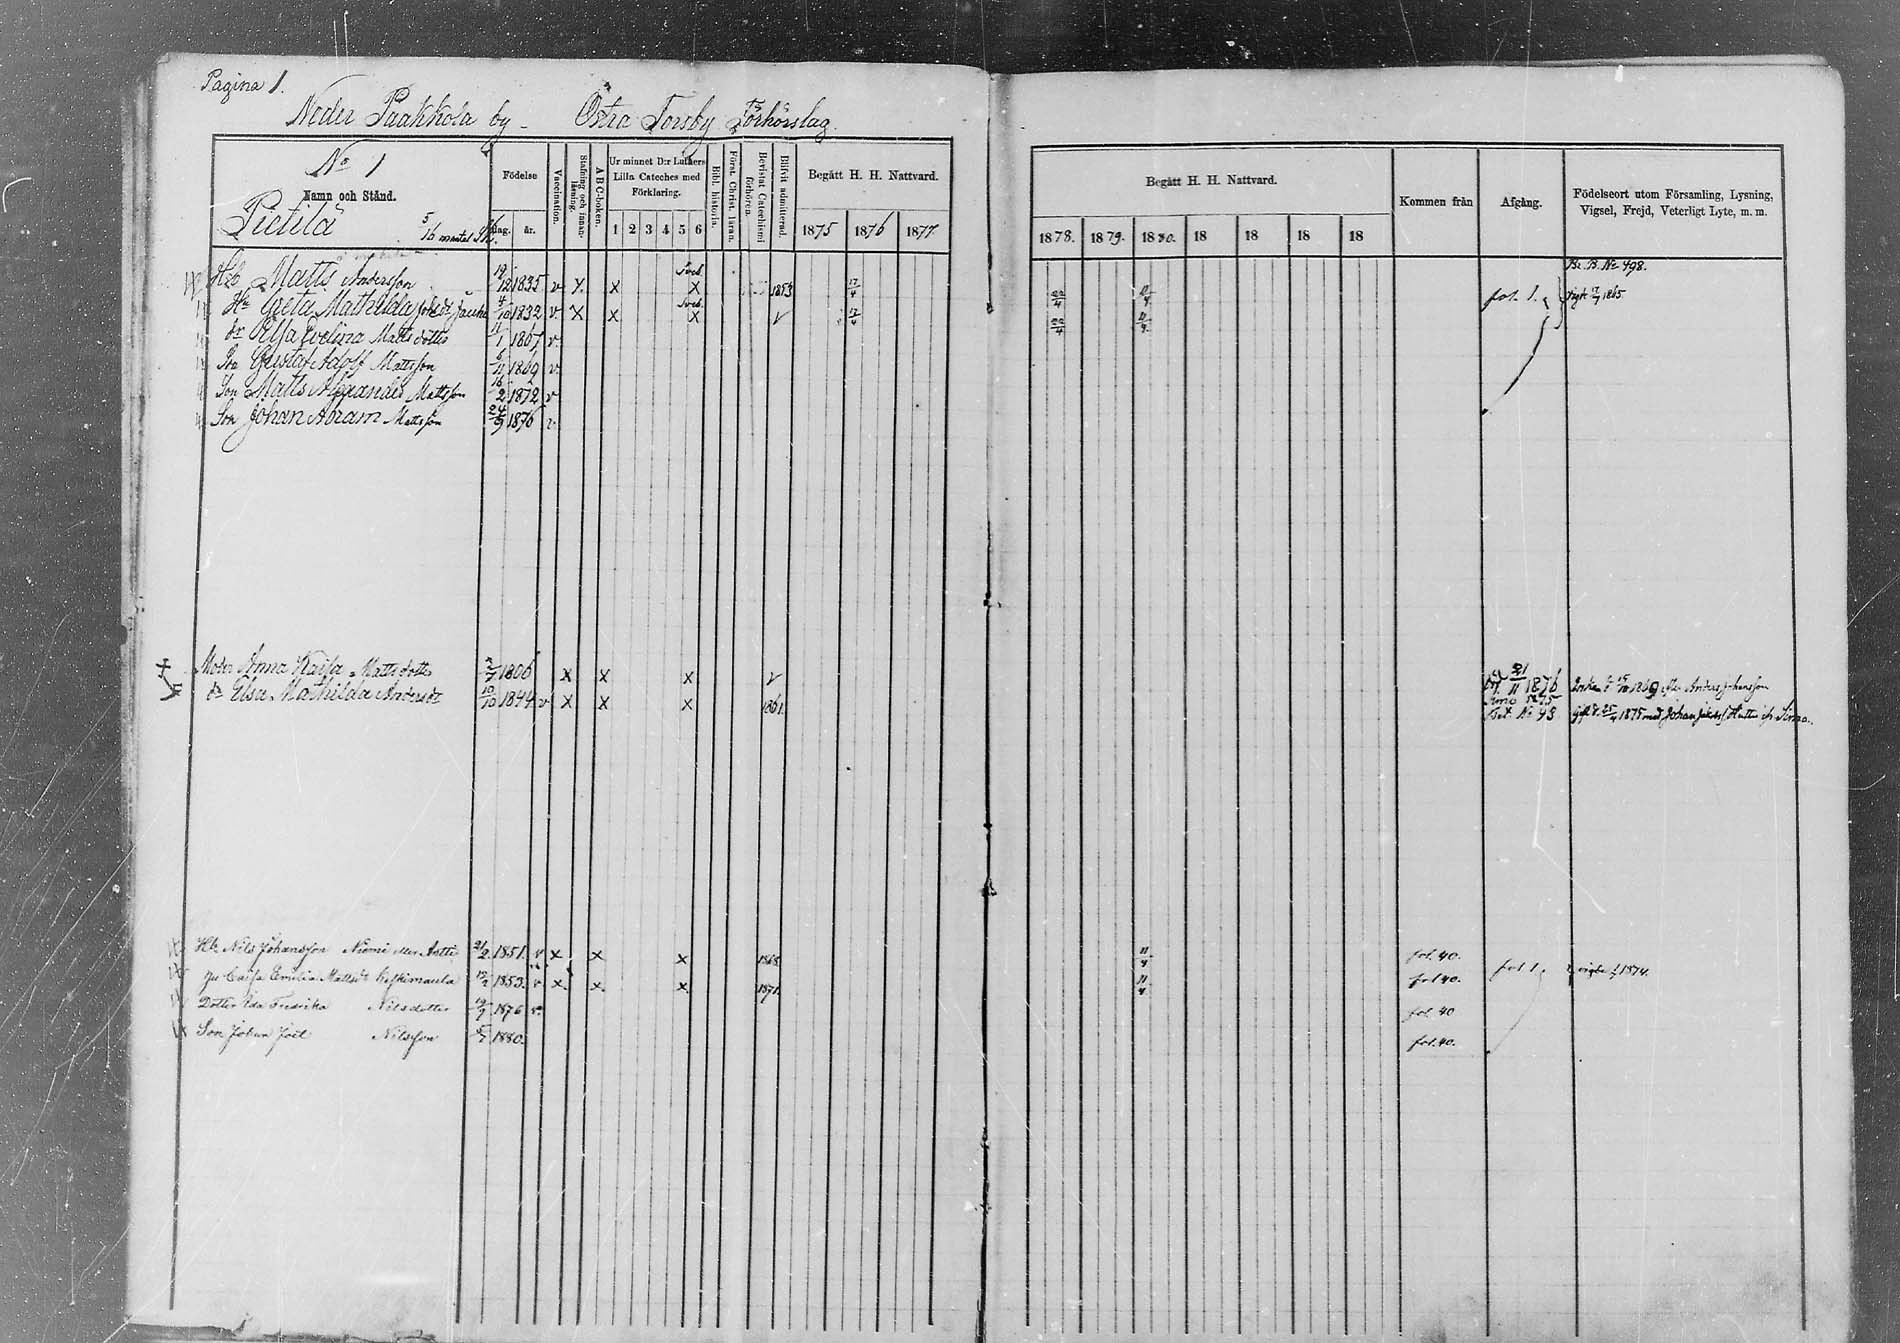 Pagina 1.
Neder Paakkola by - Östra Torsby Förhörslag.
No 1
Namn och Stånd.
Födelse
dag.
år.
Vaccination.
Stafning och innanläsning.
ABC-boken.
Ur minnet D:r Luthers Lilla Cateches med Förklaring.
1 2 3 4 5 6
Bibl. historia.
Först. Christ. läran.
Bevistat Catechismi förhören.
Blifvit admitterad.
Begått H. H. Nattvard.
1875 1876 1877
Begått H. H. Nattvard.
1878. 1879. 1880. 18 18 18 18
Kommen från
Afgång.
Födelseort utom Församling, Lysning, Vigsel, Frejd, Veterligt Lyte, m. m.
Pietilä 5/16 mantal
Br. B. No 498.
Matts Andersson 19/12 1835 v x x x 1853 17/4 22/4 11/4 fol. 1. 1865
Hu Greta Mathilda 4/10 1832 v. x x x v 17/4 22/4 11/4
dr Elsa Evelina Matts dotter 11/1 1867 v
Son Gustaf Adolf Mattsson 6/11 1869 v
Son Matts Alexander Mattsson 16/2 1872 v
Son Johan Abram Mattsson 24/9 1876 v
Moder Anna Kaisa Mattsdotter 2/7 1806 x x x v 21/11 1876 Enka 1869 efter Anders Johansson
dr Elsa Mathilda Andersdr 10/10 1844 v x x x 1861. Simo 1875
Bet. No 43 Gift d. 25/4 1875 med Johan Hutta i Simo.
Nils Johansson Niemi eller Antti 21/2 1851. v x x x 1868 11/4 fol. 40. fol 1. vigde 1874.
Hu Caisa Emilia Mattsdr Keskimaula 12/2 1853. v x x x 1871. 11/4 fol 40.
Dotter Ida Fredrika Nilsdotter 19/9 1876 v. fol. 40
Son Johan Joel Nilsson 1880. fol. 40.